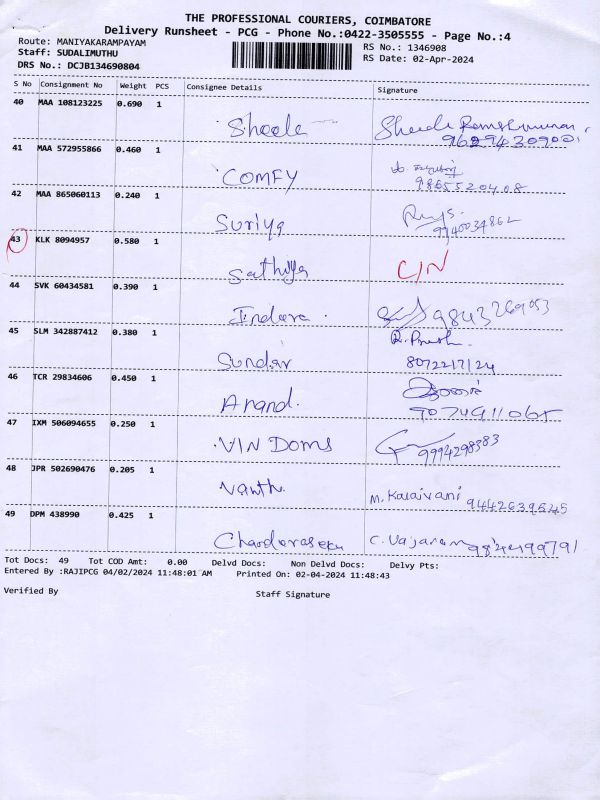 THE PROFESSIONAL COURIERS, COIMBATORE
Delivery Runsheet - PCG - Phone No.:0422-3505555 - Page No.:4
Route: MANIYAKARAMPAYAM RS No.: 1346908
Staff: SUDALIMUTHU RS Date: 02-Apr-2024
DRS No.: DCJB134690804
S No Consignment No Weight PCS Consignee Details Signature
40 MAA 108123225 0.690 1
Sheela
41 MAA 572955866 0.460 1
COMFY 9865520408
42 MAA 865060113 0.240 1
Suriya 9940034862
43 KLK 8094957 0.580 1
Sathiya C/N
44 SVK 60434581 0.390 1
Indira 9843269053
45 SLM 342887412 0.380 1
Sundar 8072217124
46 TCR 29834606 0.450 1
Anand.
47 IXM 506094655 0.250 1
VIN DOMS 9994298383
48 JPR 502690476 0.205 1
M. Kalaivani
49 DPM 438990 0.425 1
Tot Docs: 49 Tot COD Amt: 0.00 Delvd Docs: Non Delvd Docs: Delvy Pts:
Entered By :RAJIPCG 04/02/2024 11:48:01 AM Printed On: 02-04-2024 11:48:43
Verified By Staff Signature